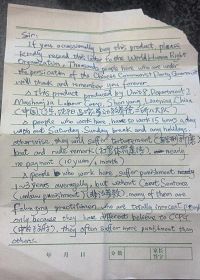 Sir:
If you occassionally buy this product, please
kindly resend this letter to the World Human Right
Organization. Thousands people here who are under
the persicution of the Chinese Communist Party Government
will thank and remember you forever.
This product produced by Unit 8, Department 2
Masanjia Labour Camp, Shenyang, Liaoning, China
(中国辽宁沈阳马三家
people who work here have to work 15 hours a day
without Saturday, Sunday break and any holidays,
otherwise, they will suffer torturement
beat and rude remark nearly
no payment (10 yuan/month)
people who work here, suffer punishment
1~3 years averagely, but without Court Sentence
(unlaw punishment) many of them are
Falun gong practitioner, who are totally innocent people
only because they have different believe to CCPG
they often suffer more punishment than
others.
年 月 日